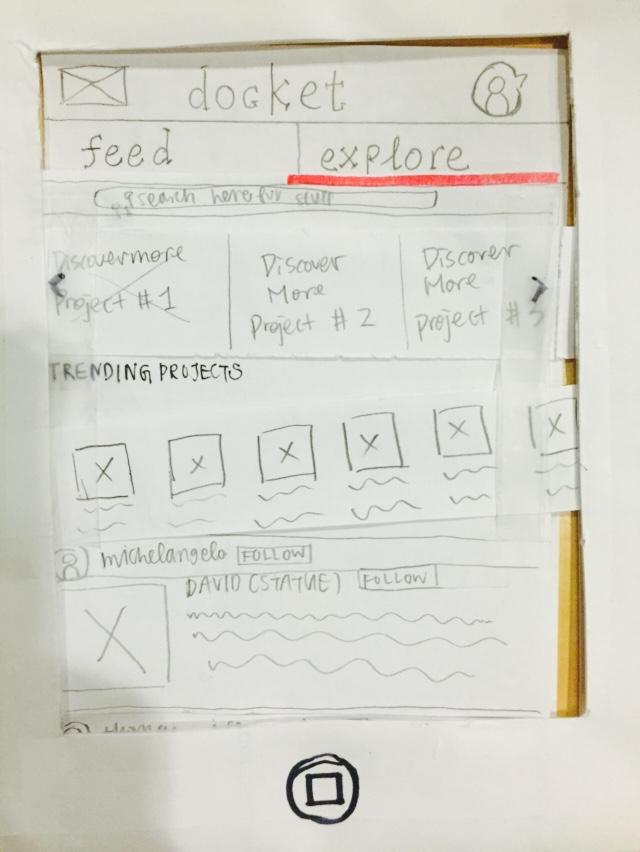 docket
feed explore
search here for stuff
Discover more
Project #1
Discover
More
Project #2
Discover
More
Project #3
TRENDING PROJECTS
michelangelo FOLLOW
DAVID (STATUE) FOLLOW